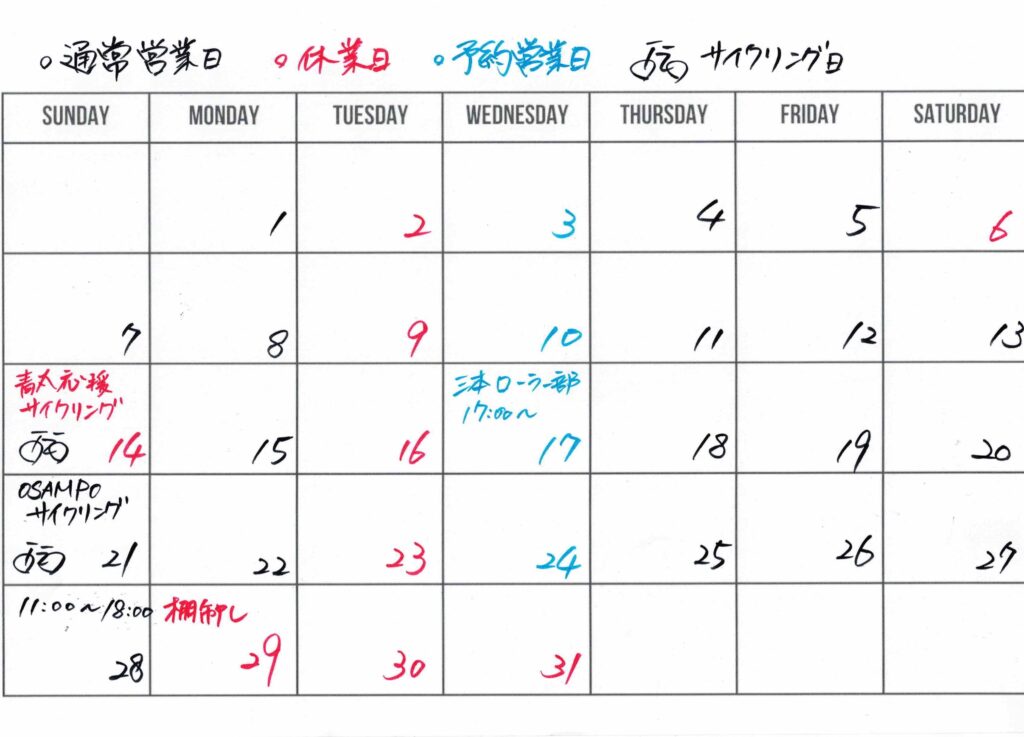 ○通常営業日 ○休業日 ○予約営業日 サイクリング日
SUNDAY MONDAY TUESDAY WEDNESDAY THURSDAY FRIDAY SATURDAY
1 2 3 4 5 6
7 8 9 10 11 12 13
青太応援
サイクリング
14 15 16
三本ローラー部
17:00〜
17 18 19 20
OSAMPO
サイクリング
21 22 23 24 25 26 27
11:00〜18:00
28
棚卸し
29 30 31